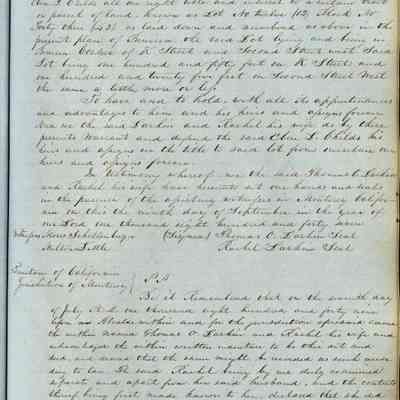 Childs all our right title and interest to a certain tract
or parcel of land known as Lot No twelve (12) Block No
Forty three (43) as laid down and described as above in the
present plan of Benicia the said Lot lying and being in
Corner of K Street and Second Street with Said
Lot being one hundred and fifty feet on K Street and
one hundred and twenty five feet on Second Street West
the same a little more or less
To have and to hold with all the appurtenances
and advantages to him and his heirs and assigns forever
And we the said Larkin and Rachel his wife do by these
presents warrant and defend the said Childs his
heirs and assigns in the title to said lot from ourselves our
heirs and assigns forever.
In testimony whereof we the said Thomas O. Larkin
and Rachel his wife have hereunto set our hands and seals
in the presence of the assisting witnesses in Monterey Califor-
nia on this the ninth day of September in the year of
our Lord one thousand eight hundred and forty seven
Witnesses (Signed) Thomas O. Larkin Seal
Milton Little Rachel Larkin Seal
Territory of California
Jurisdiction of Monterey S.S.
Be it Remembered that on the seventh day
of July A.D. one thousand eight hundred and forty nine
before an Alcalde within and for the jurisdiction aforesaid came
the within named Thomas O. Larkin and Rachel his wife and
acknowledged the within written indenture to be their act and
deed, and desired that the same might be recorded as such accor
ding to law. The said Rachel being by me duly examined
separate and apart from her said husband, and the contents
thereof being first made known to her, declared that she did